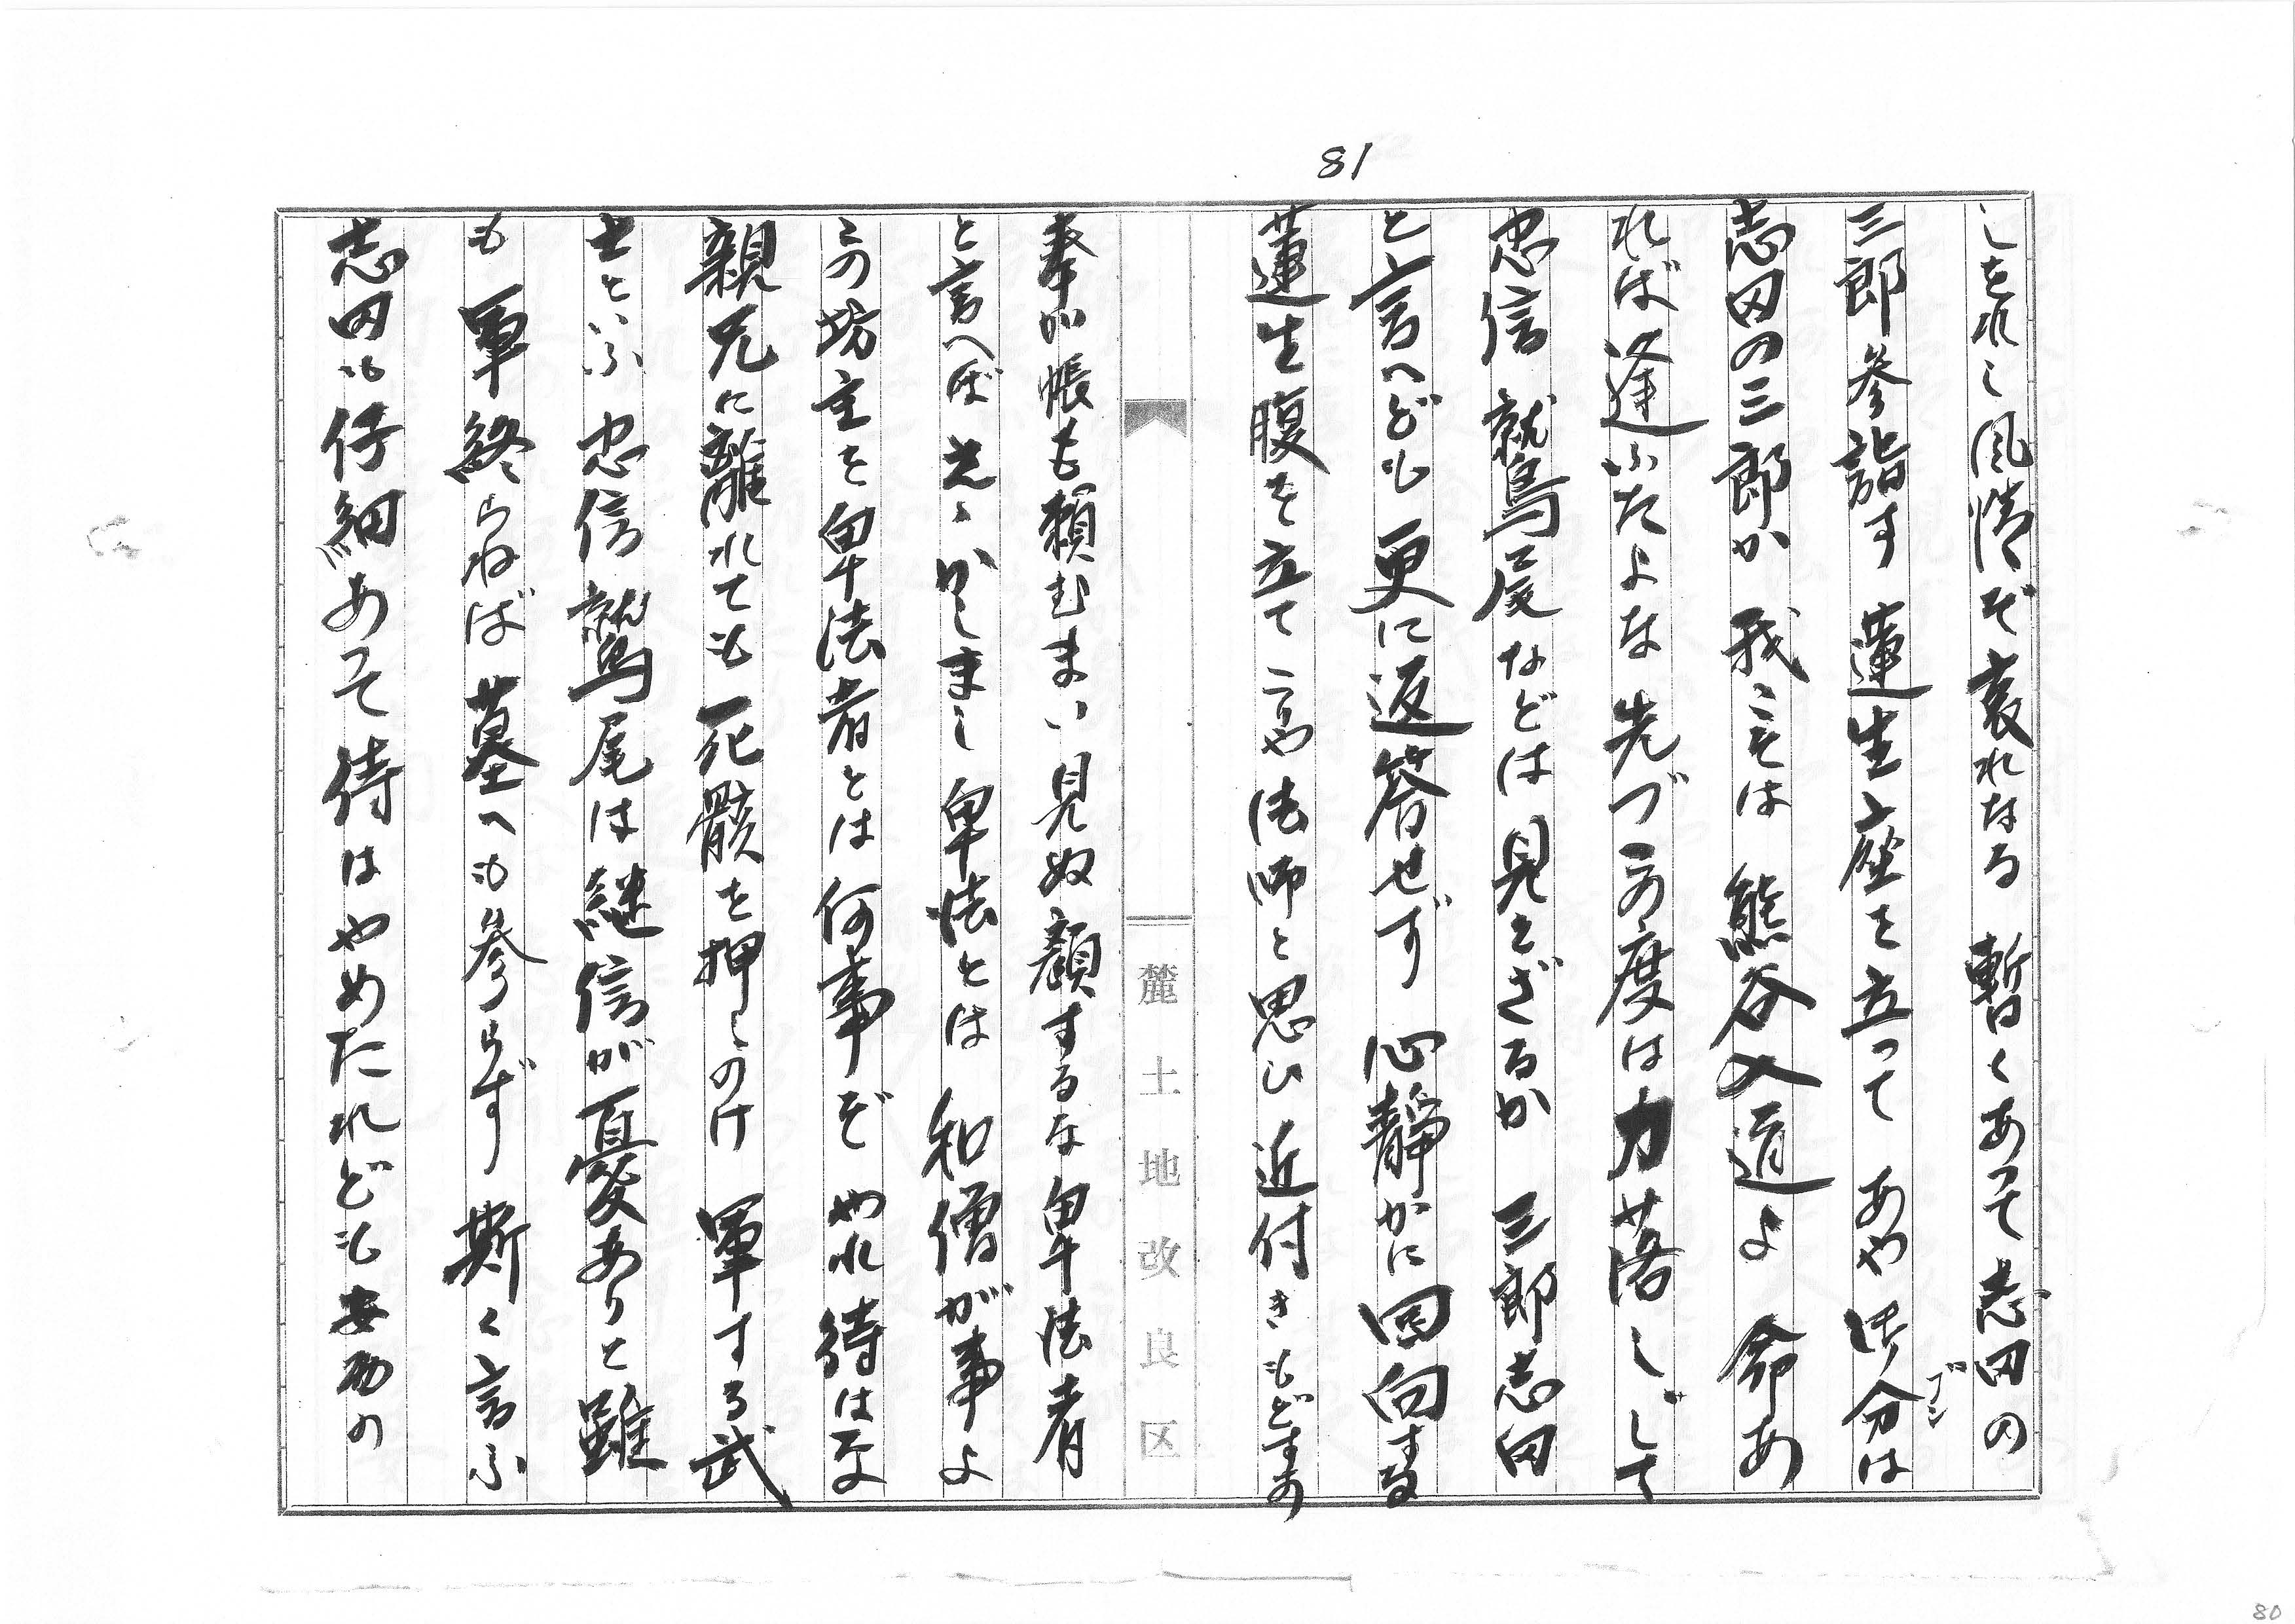 81
しをれし風情ぞ哀れなる 暫くあって志田の
三郎参詣す 蓮生座を立って あや 御分は
ブン
志田の三郎か 我こそは 熊谷入道よ 命あ
れば逢ふたよな 先づこの度は力落しどして
忠信 鷲尾などは見えざるか 三郎志田
と言へども更に返答せず 心静かに回向する
蓮生腹を立て こや法師と思ひ近付きもどすの
麓土地改良区
奉が帳も頼むまい 見ぬ顔するな卑法者
と言へば 志かしまし 卑法とは 和僧が事よ
この坊主を卑法者とは何事ぞ やれ待はな
親兄に離れても 死骸を押しのけ 軍する武
士といふ 忠信鷲尾は継信が憂ありと雖
も 軍終らねば 墓へも参らず 斯く言ふ
志田も仔細あって 待はやめたれども 安西の
80